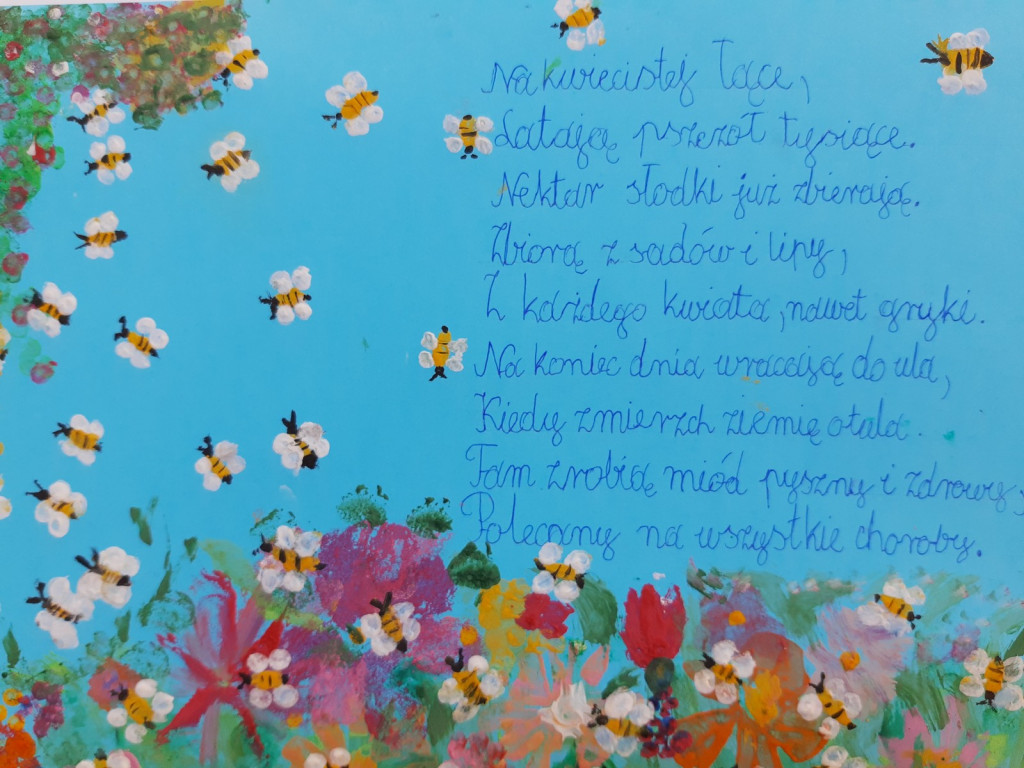 Na kwiecistej łące,
Latają pszczół tysiące.
Nektar słodki już zbierają.
Zbiorą z sadów i lipy,
Z każdego kwiata, nawet gryki.
Na koniec dnia wracają do ula,
Kiedy zmierzch ziemię otula.
Tam zrobią miód pyszny i zdrowy,
Polecany na wszystkie choroby.